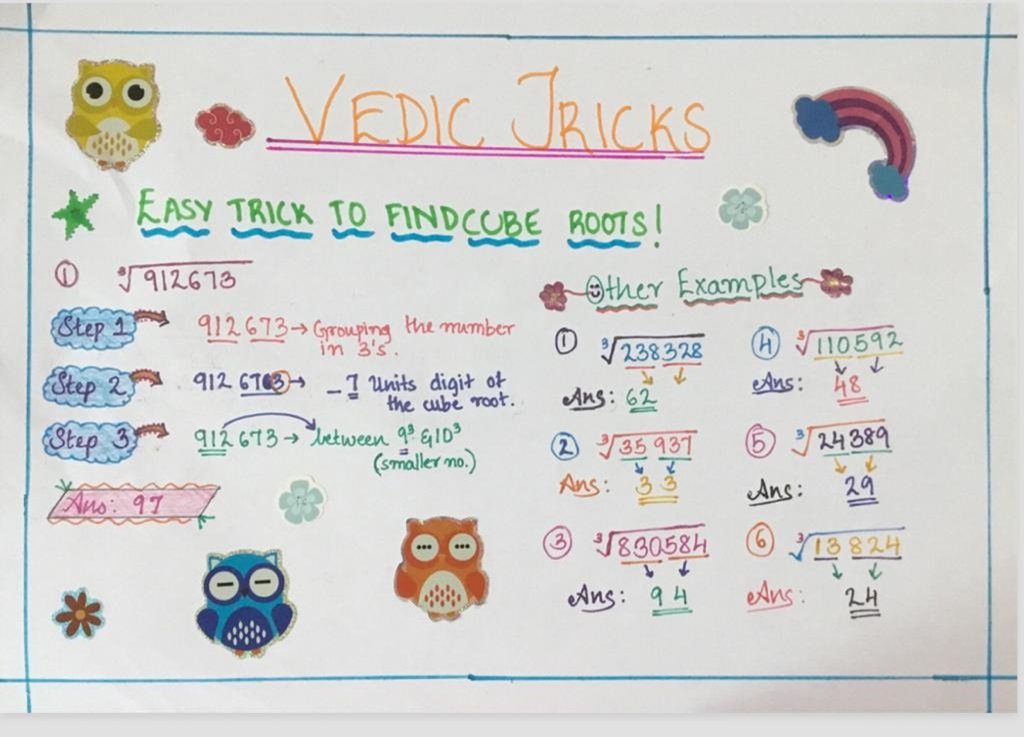 VEDIC TRICKS
EASY TRICK TO FIND CUBE ROOTS!
① ∛912673
Step 1 912 673 → Grouping the number
in 3's.
Step 2 912 673 → _7 Units digit of
the cube root.
Step 3 912 673 → between 9³ & 10³
(smaller no.)
Ans: 97
Other Examples
① ∛238328
Ans: 62
② ∛35 937
Ans: 33
③ ∛830584
Ans: 94
④ ∛110592
Ans: 48
⑤ ∛24389
Ans: 29
⑥ ∛13 824
Ans: 24